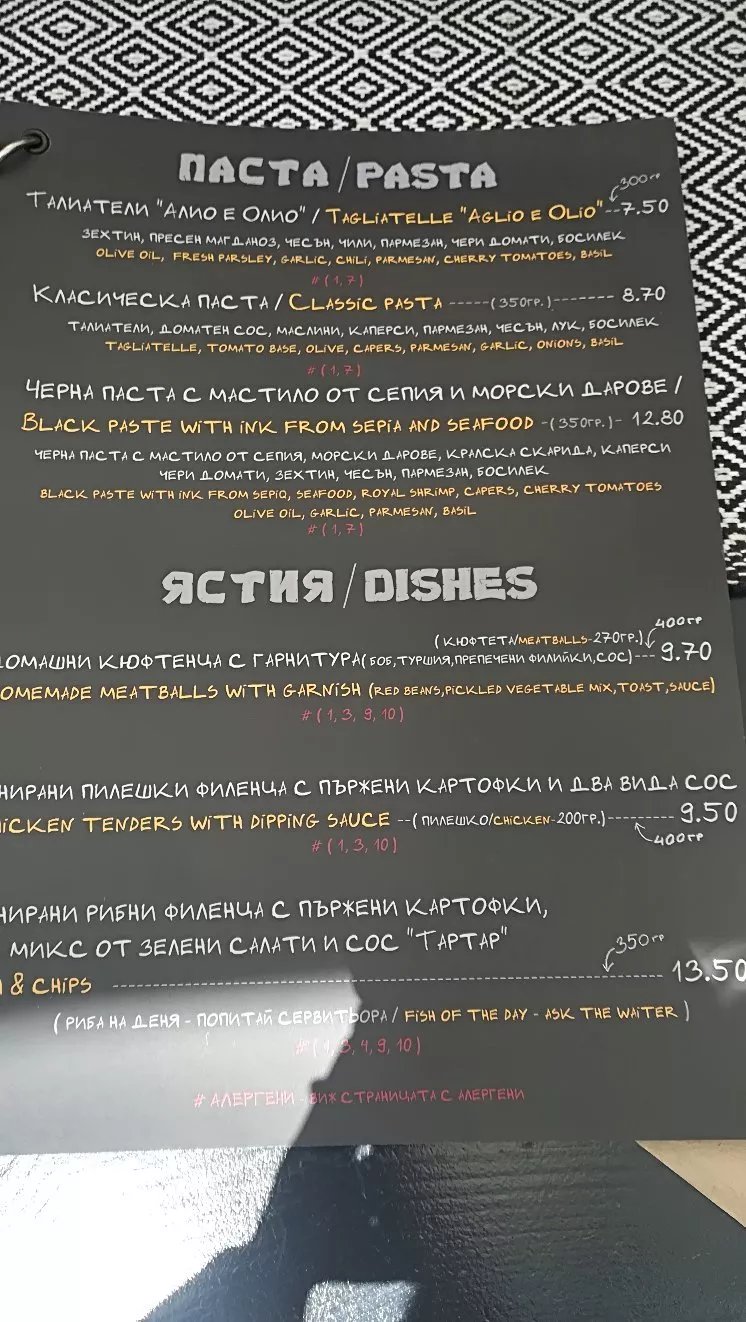 ПАСТА/PASTA
300гр
ТАЛИАТЕЛИ "АЛИО Е ОЛИО" / TAGLIATELLE "AGLIO E OLIO"--7.50
ЗЕХТИН, ПРЕСЕН МАГДАНОЗ, ЧЕСЪН, ЧИЛИ, ПАРМЕЗАН, ЧЕРИ ДОМАТИ, БОСИЛЕК
OLIVE OIL, FRESH PARSLEY, GARLIC, CHILI, PARMESAN, CHERRY TOMATOES, BASIL
#(1,7)
КЛАСИЧЕСКА ПАСТА / CLASSIC PASTA -----(350ГР.)------- 8.70
ТАЛИАТЕЛИ, ДОМАТЕН СОС, МАСЛИНИ, КАПЕРСИ, ПАРМЕЗАН, ЧЕСЪН, ЛУК, БОСИЛЕК
TAGLIATELLE, TOMATO BASE, OLIVE, CAPERS, PARMESAN, GARLIC, ONIONS, BASIL
#(1,7)
ЧЕРНА ПАСТА С МАСТИЛО ОТ СЕПИЯ И МОРСКИ ДАРОВЕ /
BLACK PASTE WITH INK FROM SEPIA AND SEAFOOD -(350ГР.)- 12.80
ЧЕРНА ПАСТА С МАСТИЛО ОТ СЕПИЯ, МОРСКИ ДАРОВЕ, КРАЛСКА СКАРИДА, КАПЕРСИ
ЧЕРИ ДОМАТИ, ЗЕХТИН, ЧЕСЪН, ПАРМЕЗАН, БОСИЛЕК
BLACK PASTE WITH INK FROM SEPIQ, SEAFOOD, ROYAL SHRIMP, CAPERS, CHERRY TOMATOES
OLIVE OIL, GARLIC, PARMESAN, BASIL
#(1,7)
ЯСТИЯ/DISHES
400гр
(КЮФТЕТА/MEATBALLS-270ГР.)
ОМАШНИ КЮФТЕНЦА С ГАРНИТУРА(БОБ,ТУРШИЯ,ПРЕПЕЧЕНИ ФИЛИЙКИ,СОС)--- 9.70
OMEMADE MEATBALLS WITH GARNISH (RED BEANS,PICKLED VEGETABLE MIX,TOAST,SAUCE)
#(1, 3, 9, 10)
НИРАНИ ПИЛЕШКИ ФИЛЕНЦА С ПЪРЖЕНИ КАРТОФКИ И ДВА ВИДА СОС
ICKEN TENDERS WITH DIPPING SAUCE --(ПИЛЕШКО/CHICKEN-200ГР.)--------- 9.50
#(1, 3, 10)
400гр
НИРАНИ РИБНИ ФИЛЕНЦА С ПЪРЖЕНИ КАРТОФКИ,
МИКС ОТ ЗЕЛЕНИ САЛАТИ И СОС "ТАРТАР"
350гр
& CHIPS ------------------------------------------------ 13.50
(РИБА НА ДЕНЯ - ПОПИТАЙ СЕРВИТЬОРА / FISH OF THE DAY - ASK THE WAITER)
#(1, 3, 4, 9, 10)
# АЛЕРГЕНИ - ВИЖ СТРАНИЦАТА С АЛЕРГЕНИ